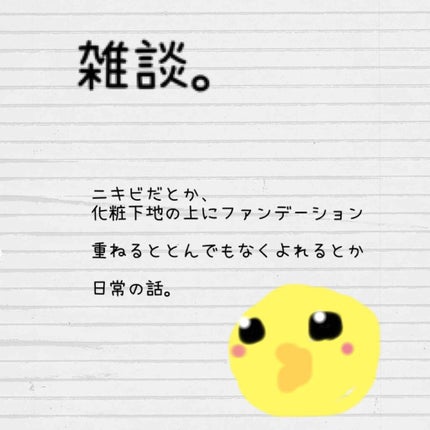 雑談。
ニキビだとか、
化粧下地の上にファンデーション
重ねるととんでもなくよれるとか
日常の話。